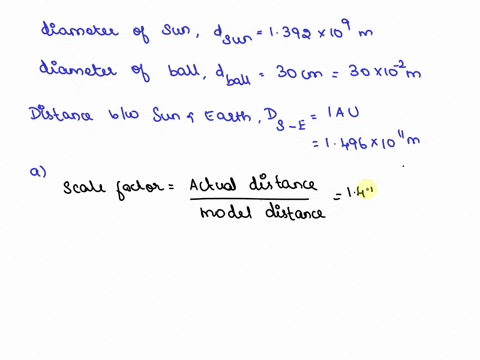 diameter of Sun, d_sun = 1.392 × 10⁹ m
diameter of ball, d_ball = 30 cm = 30 × 10⁻² m
Distance b/w Sun & Earth, D_S-E = 1 AU
= 1.496 × 10¹¹ m
a)
Scale factor = Actual distance / model distance = 1.4